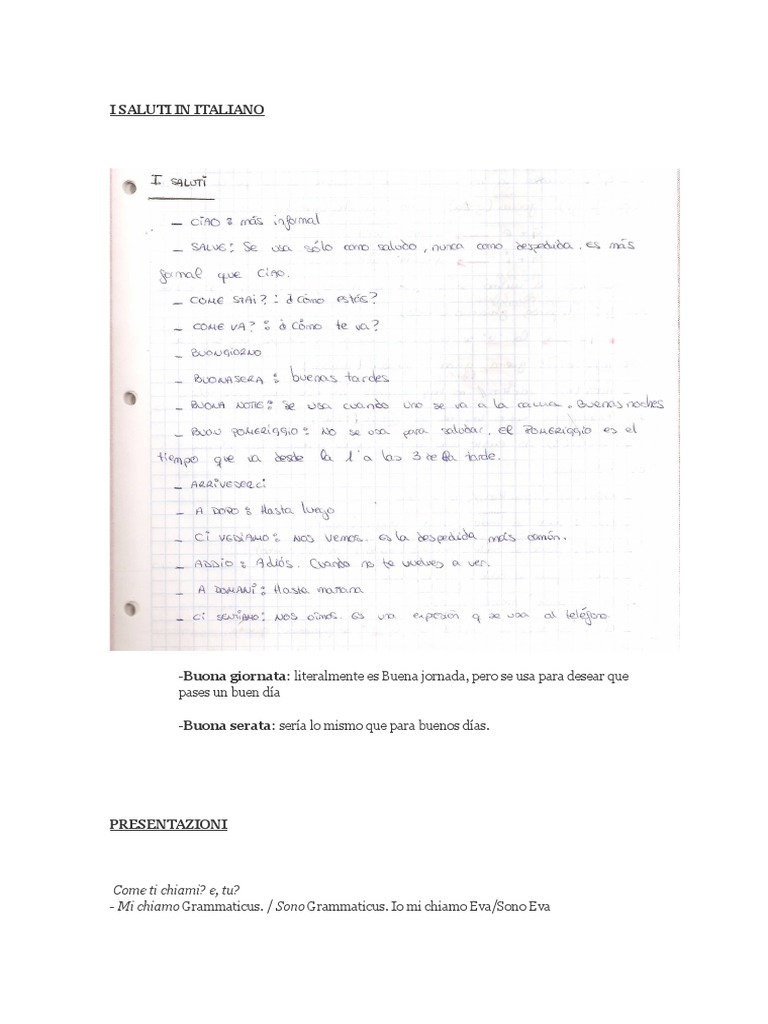 I SALUTI IN ITALIANO
I SALUTI
- CIAO : más informal
- SALVE : Se usa sólo como saludo, nunca como despedida. es más
formal que Ciao.
- COME STAI? : ¿cómo estás?
- COME VA? : ¿Cómo te va?
- BUONGIORNO
- BUONASERA : buenas tardes
- BUONA NOTTE : se usa cuando uno se va a la cama. Buenas noches
- BUON POMERIGGIO : NO se usa para saludar. El POMERIGGIO es el
tiempo que va desde la 1 a las 3 de la tarde.
- ARRIVEDERCI
- A DOPO : Hasta luego
- CI VEDIAMO : NOS vemos. es la despedida más común.
- ADDIO : Adiós. Cuando no te vuelves a ver.
- A DOMANI : Hasta mañana
- CI SENTIAMO : NOS oímos. Es una expresión q se usa al teléfono.
-Buona giornata: literalmente es Buena jornada, pero se usa para desear que
pases un buen día
-Buona serata: sería lo mismo que para buenos días.
PRESENTAZIONI
Come ti chiami? e, tu?
- Mi chiamo Grammaticus. / Sono Grammaticus. Io mi chiamo Eva/Sono Eva